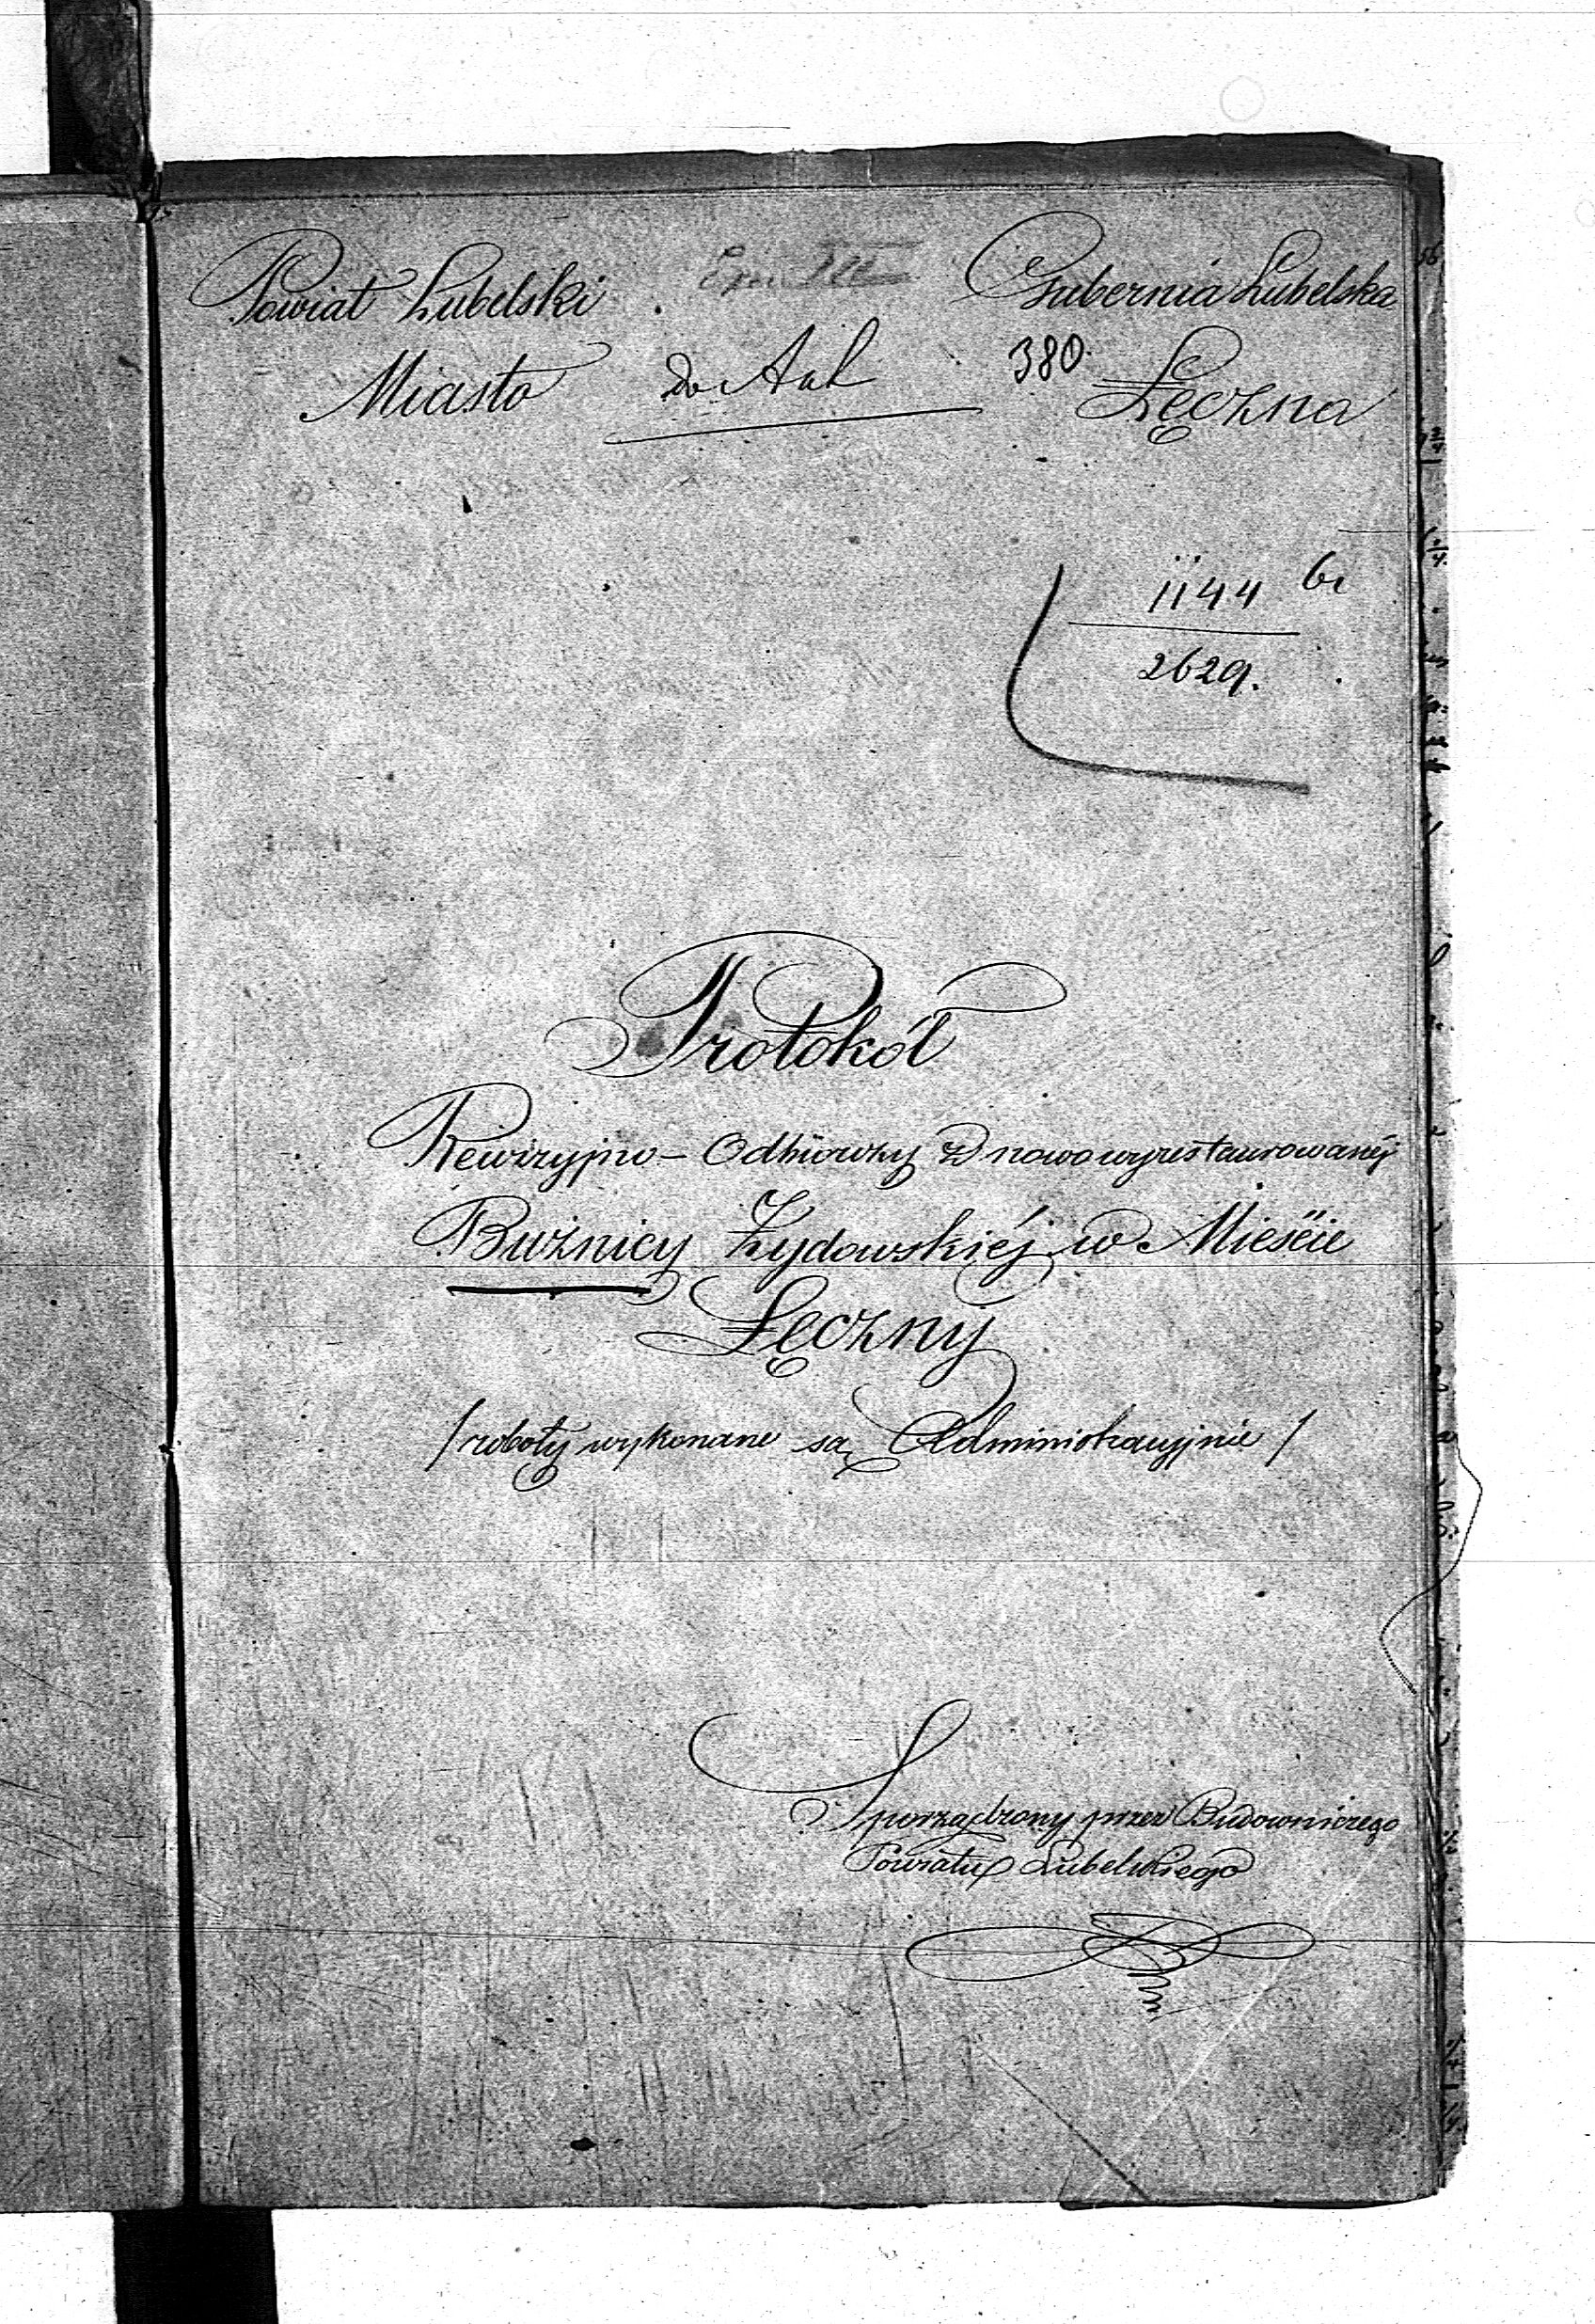 Powiat Lubelski Gubernia Lubelska
Miasto do Akt 380 Łęczna
1144
2629.
Protokół
Rewizyjno - Odbiorczy z nowowyrestaurowanéj
Bużnicy Żydowskiéj w Mieście
Łęczny
/ roboty wykonane są Administracyjnie /
Sporządzony przez Budowniczego
Powiatu Lubelskiego